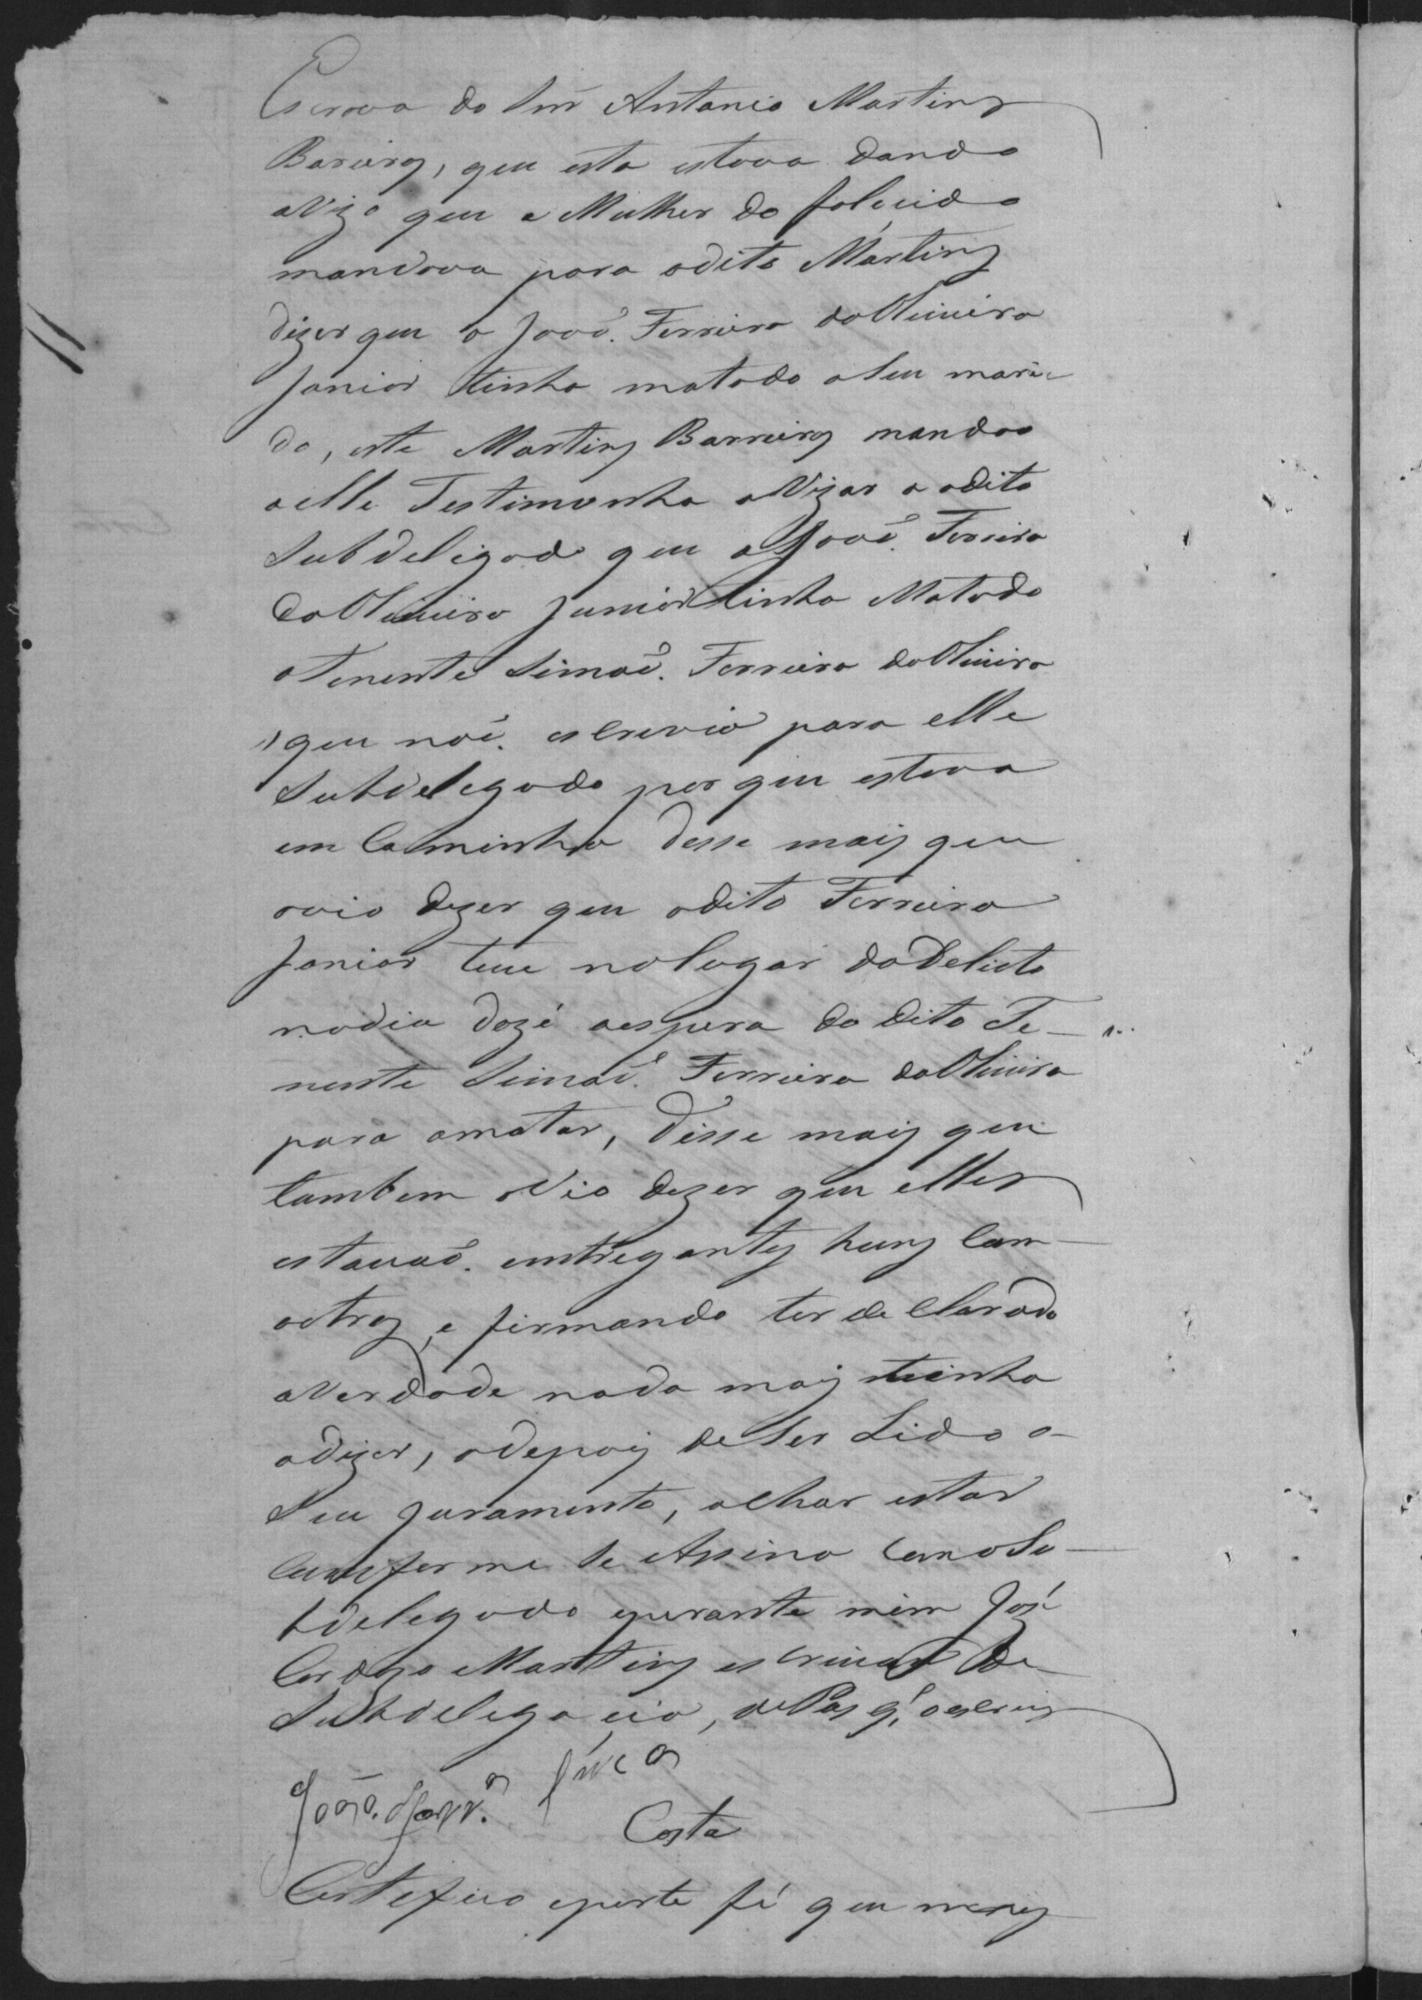 Escrava do Snr Antonio Martins
Bareiros, que esta estava dando
avizo que a Mulher do falecido
mandava para odito Martins
dizer que o João Ferreira daOliveira
Junior tinha matado oSeu mari-
do, este Martins Barreiros mandou
aelle Testimunha avizar o odito
Subdeligado que o João Ferreira
daOliveira Junior tinha Matado
oTenente Simão Ferreira daOliveira
que não escrevio para elle
Subdelegado por que estava
em Caminho desse mais que
ovio dizer que odito Ferreira
Junior teve nolugar doDelicto
nodia dozé aespera do dito Te-
nente Simão Ferreira daOliveira
para omatar, disse mais que
tambem oVio dezer que elles
estavão entregantes huns Com
outros, e firmando ter declarado
aVerdade nada mais tinha
adizer, edepois deSer Lido o
Seu Juramento, achar estar
Comforme Se Assina ComoSu-
bdelegado eperante mim José
Cardozo Martins escrivão de
Subdelegacia, que oescrevy
João Ferr.ª
Costa
Certefico eporto fé que